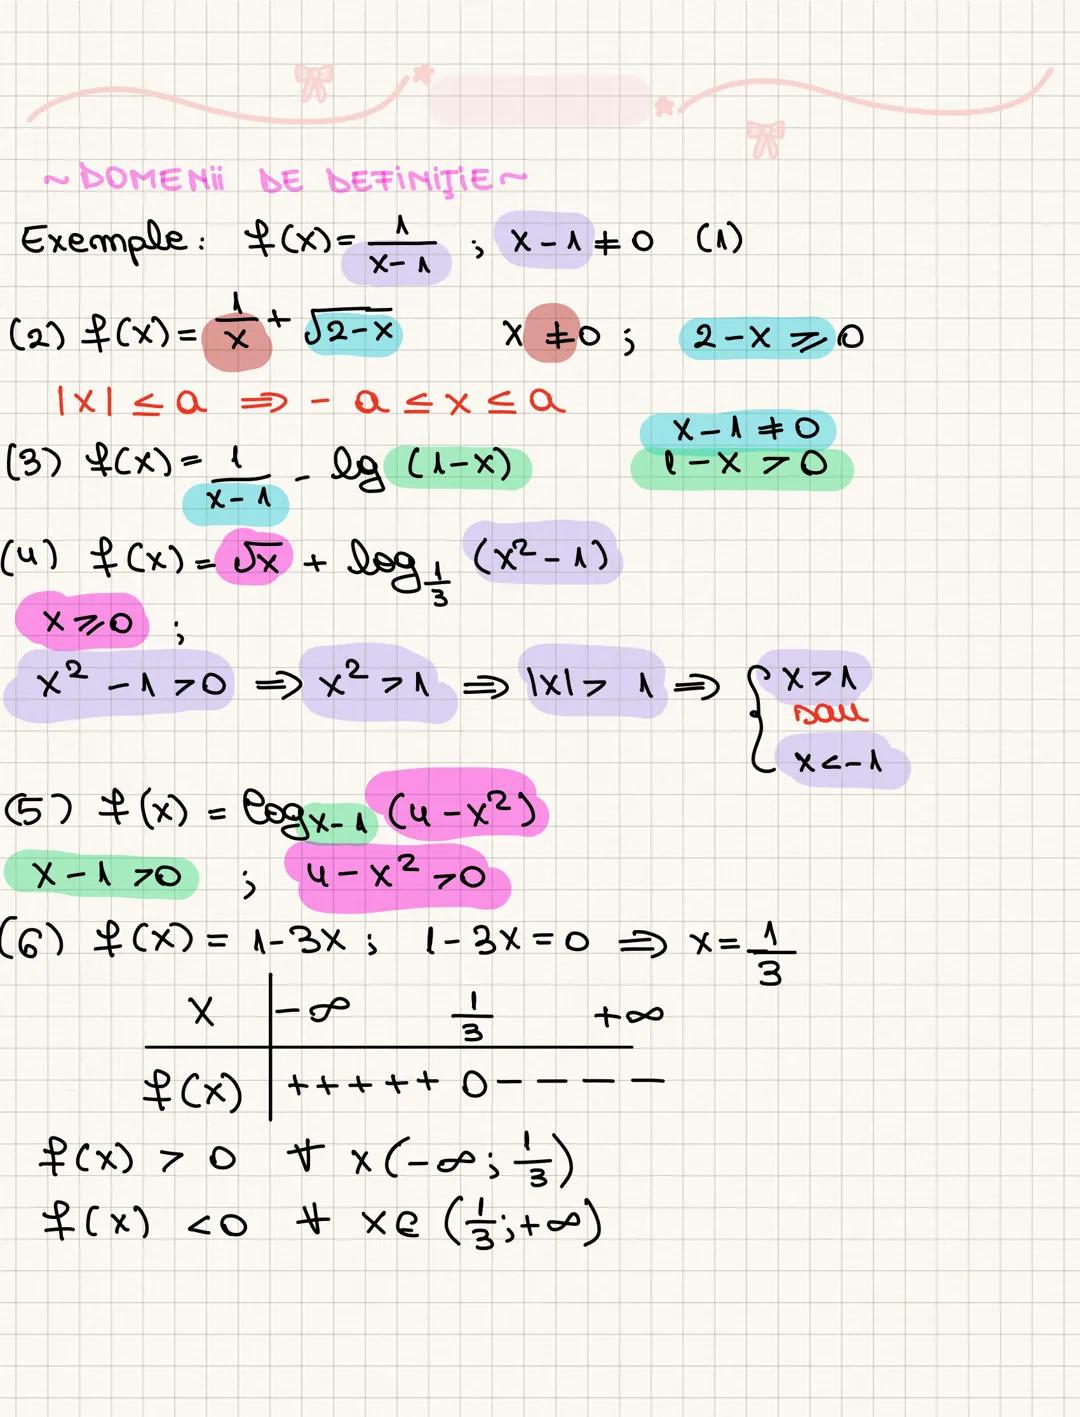 ~DOMENii DE DEFiNiŢiE~
Exemple: f(x)= 1/(x-1) ; x-1≠0 (1)
(2) f(x)= 1/x + √(2-x) x≠0 ; 2-x ⩾ 0
|x| ≤ a ⟹ -a ≤ x ≤ a
x-1≠0
(3) f(x)= 1/(x-1) - lg (1-x) 1-x >0
(4) f(x)= √x + log_(1/3) (x²-1)
x⩾0 ;
x²-1>0 ⟹ x²>1 ⟹ |x|> 1 ⟹ { x>1
sau
x<-1
(5) f(x) = log_(x-1) (4-x²)
x-1>0 ; 4-x²>0
(6) f(x)= 1-3x ; 1-3x=0 ⟹ x= 1/3
x | -∞ 1/3 +∞
f(x) | +++++ 0 - - - -
f(x) > 0 ∀ x(-∞; 1/3)
f(x) <0 ∀ x∈ (1/3;+∞)